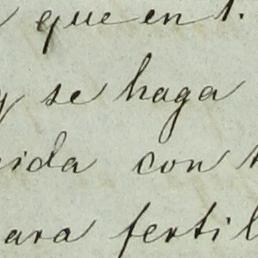 que en 1.
y se haga
ida con
ara fertil